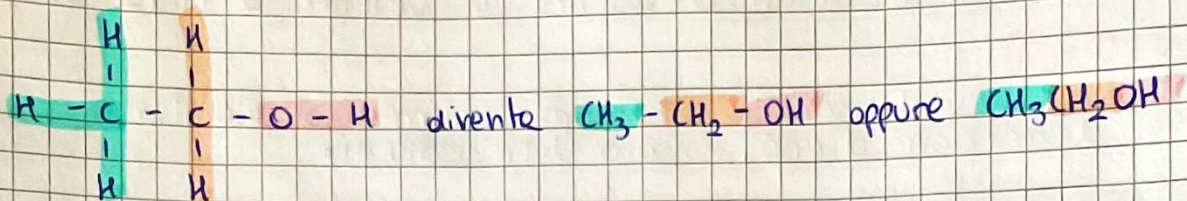 H H
H - C - C - O - H diventa CH₃ - CH₂ - OH oppure CH₃CH₂OH
H H